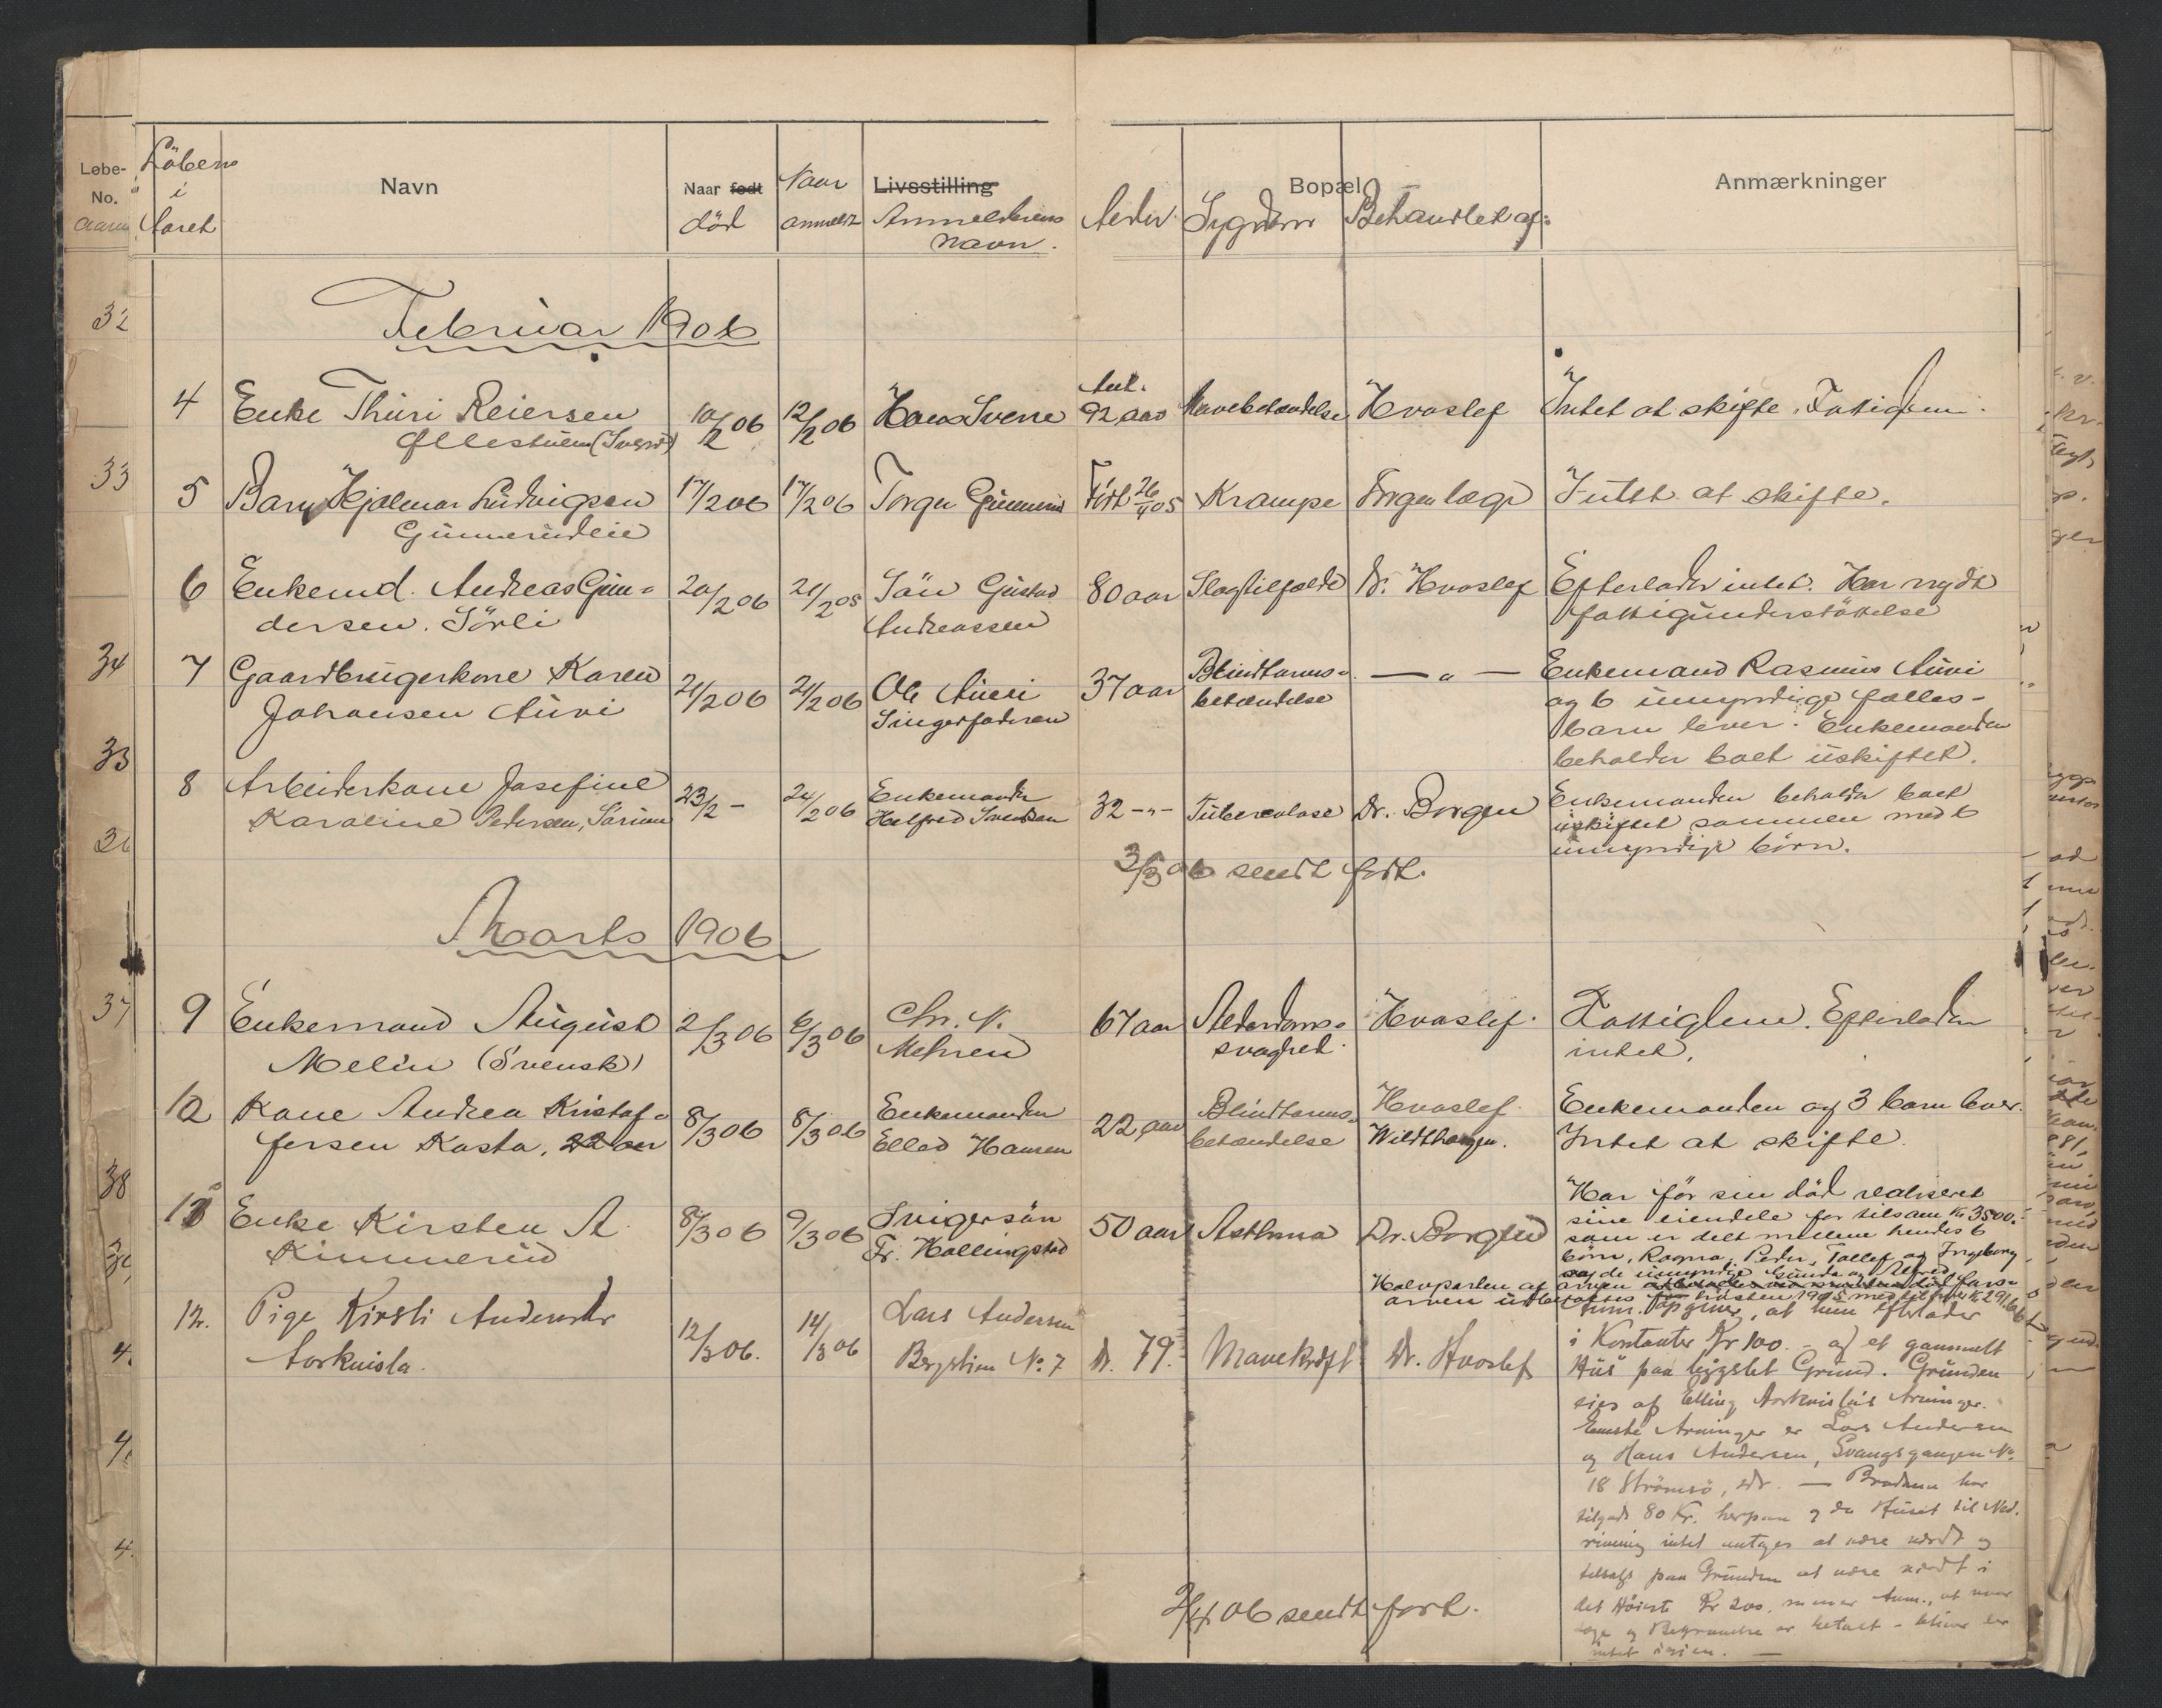 Løbe- No. Löbeno i Aaret
Navn
Naar født död
Naar anmeldt
Livsstilling Anmelderens navn.
Alder
Bopæl
Sygdom
Behandlet af:
Anmærkninger
Februar 1906
4 Enke Thuri Reiersen 10/2 06 12/2 06 Hans Svene Anl. 92 aar Mavebetændelse Hvoslef Intet at skifte. Fattiglem.
5 Barn Hjalmar Ludvigsen 17/2 06 17/2 06 Torger Gunnerud Födt 26/4 05 Krampe Ingen læge Intet at skifte.
Gunnerudeie
6 Enkemd. Andreas Gun= 20/2 06 21/2 05 Sön Gustav 80 aar Slagtilfælde Dr. Hvoslef Efterlader intet. Har nydt
dersen. Sörli Andreassen fattigunderstöttelse
7 Gaardbrugerkone Karen 21/2 06 21/2 06 Ole Auvi 37 aar Blindtarms= — „ — Enkemand Rasmus Auvi
Johansen Auvi Svigerfaderen betændelse og 6 umyndige fælles-
barn lever. Enkemanden
beholder boet uskiftet.
8 Arbeiderkone Josefine 23/2 - 24/2 06 Enkemanden 32 -„- Tuberculose Dr. Borgen Enkemanden beholder boet
Karoline Pedersen, Sörum Halfred Svendsen uskiftet sammen med 6
umyndige börn.
3/3 06 sendt fort.
Marts 1906
9 Enkemand August 2/3 06 6/3 06 Chr. N. 67 aar Alderdoms= Hvoslef. Fattiglem. Efterlader
Melin (Svensk) Mehren svaghed. intet.
10 Kone Andrea Kristof= 8/3 06 8/3 06 Enkemanden 22 aar Blindtarms= Hvoslef. Enkemanden og 3 barn lever.
fersen Kasta, 22 aar Ellad Hansen betændelse Wildthagen. Intet at skifte.
11 Enke Kirsten A. 8/3 06 9/3 06 Svigersön 50 aar Asthma Dr. Borgen Har för sin död realiseret
Kimmerud Fr. Hallingstad sine eiendele for tilsam Kr. 3500.-
som er delt mellem hendes 6
börn, Ragna, Peder, Tollef og Ingeborg
og de umyndige Gunda og Alfred.
Halvparten af arven
arven udbetaltes hösten 1905 med Kr. 291.66
12. Pige Kirsti Andersdr 12/3 06. 14/3 06 Lars Andersen Anm. Opgiver, at hun efterlader
Aarkvisla. Bergstien No. 7 79. Mavekræft Dr. Hvoslef i Kontanter Kr 100.- og et gammelt
Hus paa bygslet Grund. Grunden
eies af Elling Aarkvisla's Arvinger.
Eneste Arvinger er Lars Andersen
og Hans Andersen, Svangsgangen No.
18 Strömsö, Dr. — Brodren har
tilgode 80 Kr. herpaa og da Huset til Ned.
rivning intet antages at være værdt og
tilsalgs paa Grunden at være værdt i
det Höieste Kr 200, mener Anm., at naar
Læge og Begravelse er betalt - bliver der
intet igjen. —
2/4 06 sendt fort.
32
33
34
37
38